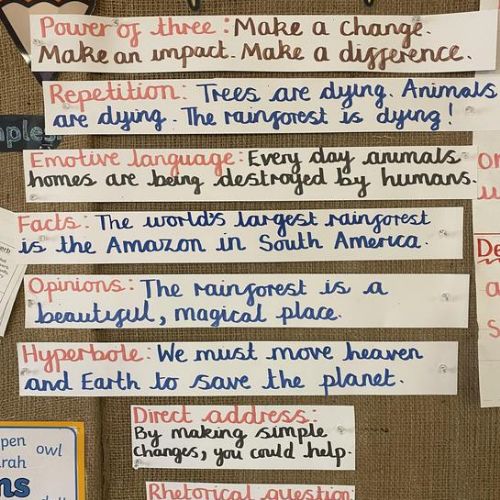 Power of three: Make a change.
Make an impact. Make a difference.
Repetition: Trees are dying. Animals
are dying. The rainforest is dying!
Emotive language: Every day animals
homes are being destroyed by humans.
Facts: The world's largest rainforest
is the Amazon in South America.
Opinions: The rainforest is a
beautiful, magical place.
Hyperbole: We must move heaven
and Earth to save the planet.
Direct address:
By making simple
changes, you could help.
Rhetorical question:
owl